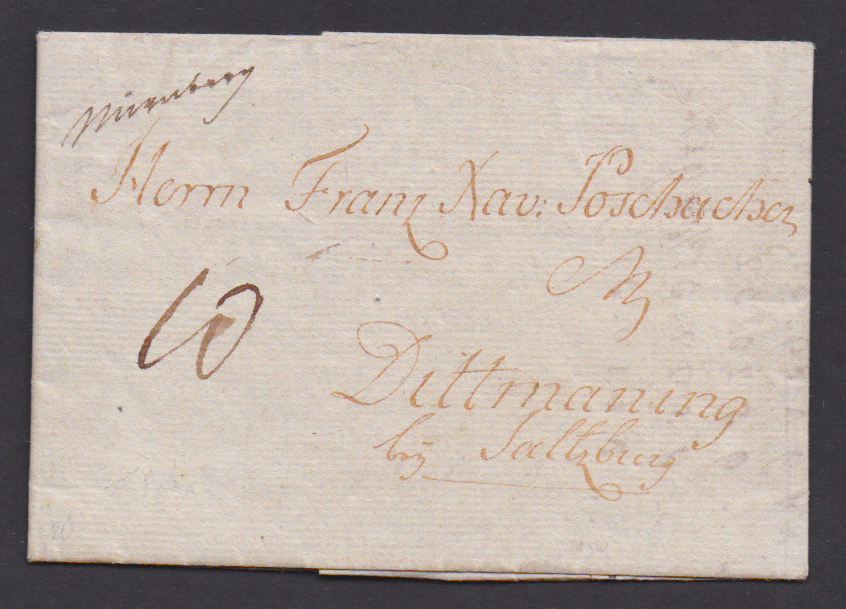 Nürnberg
Herrn Franz Xav: Poschacher
10
Dittmaning
bey Saltzburg